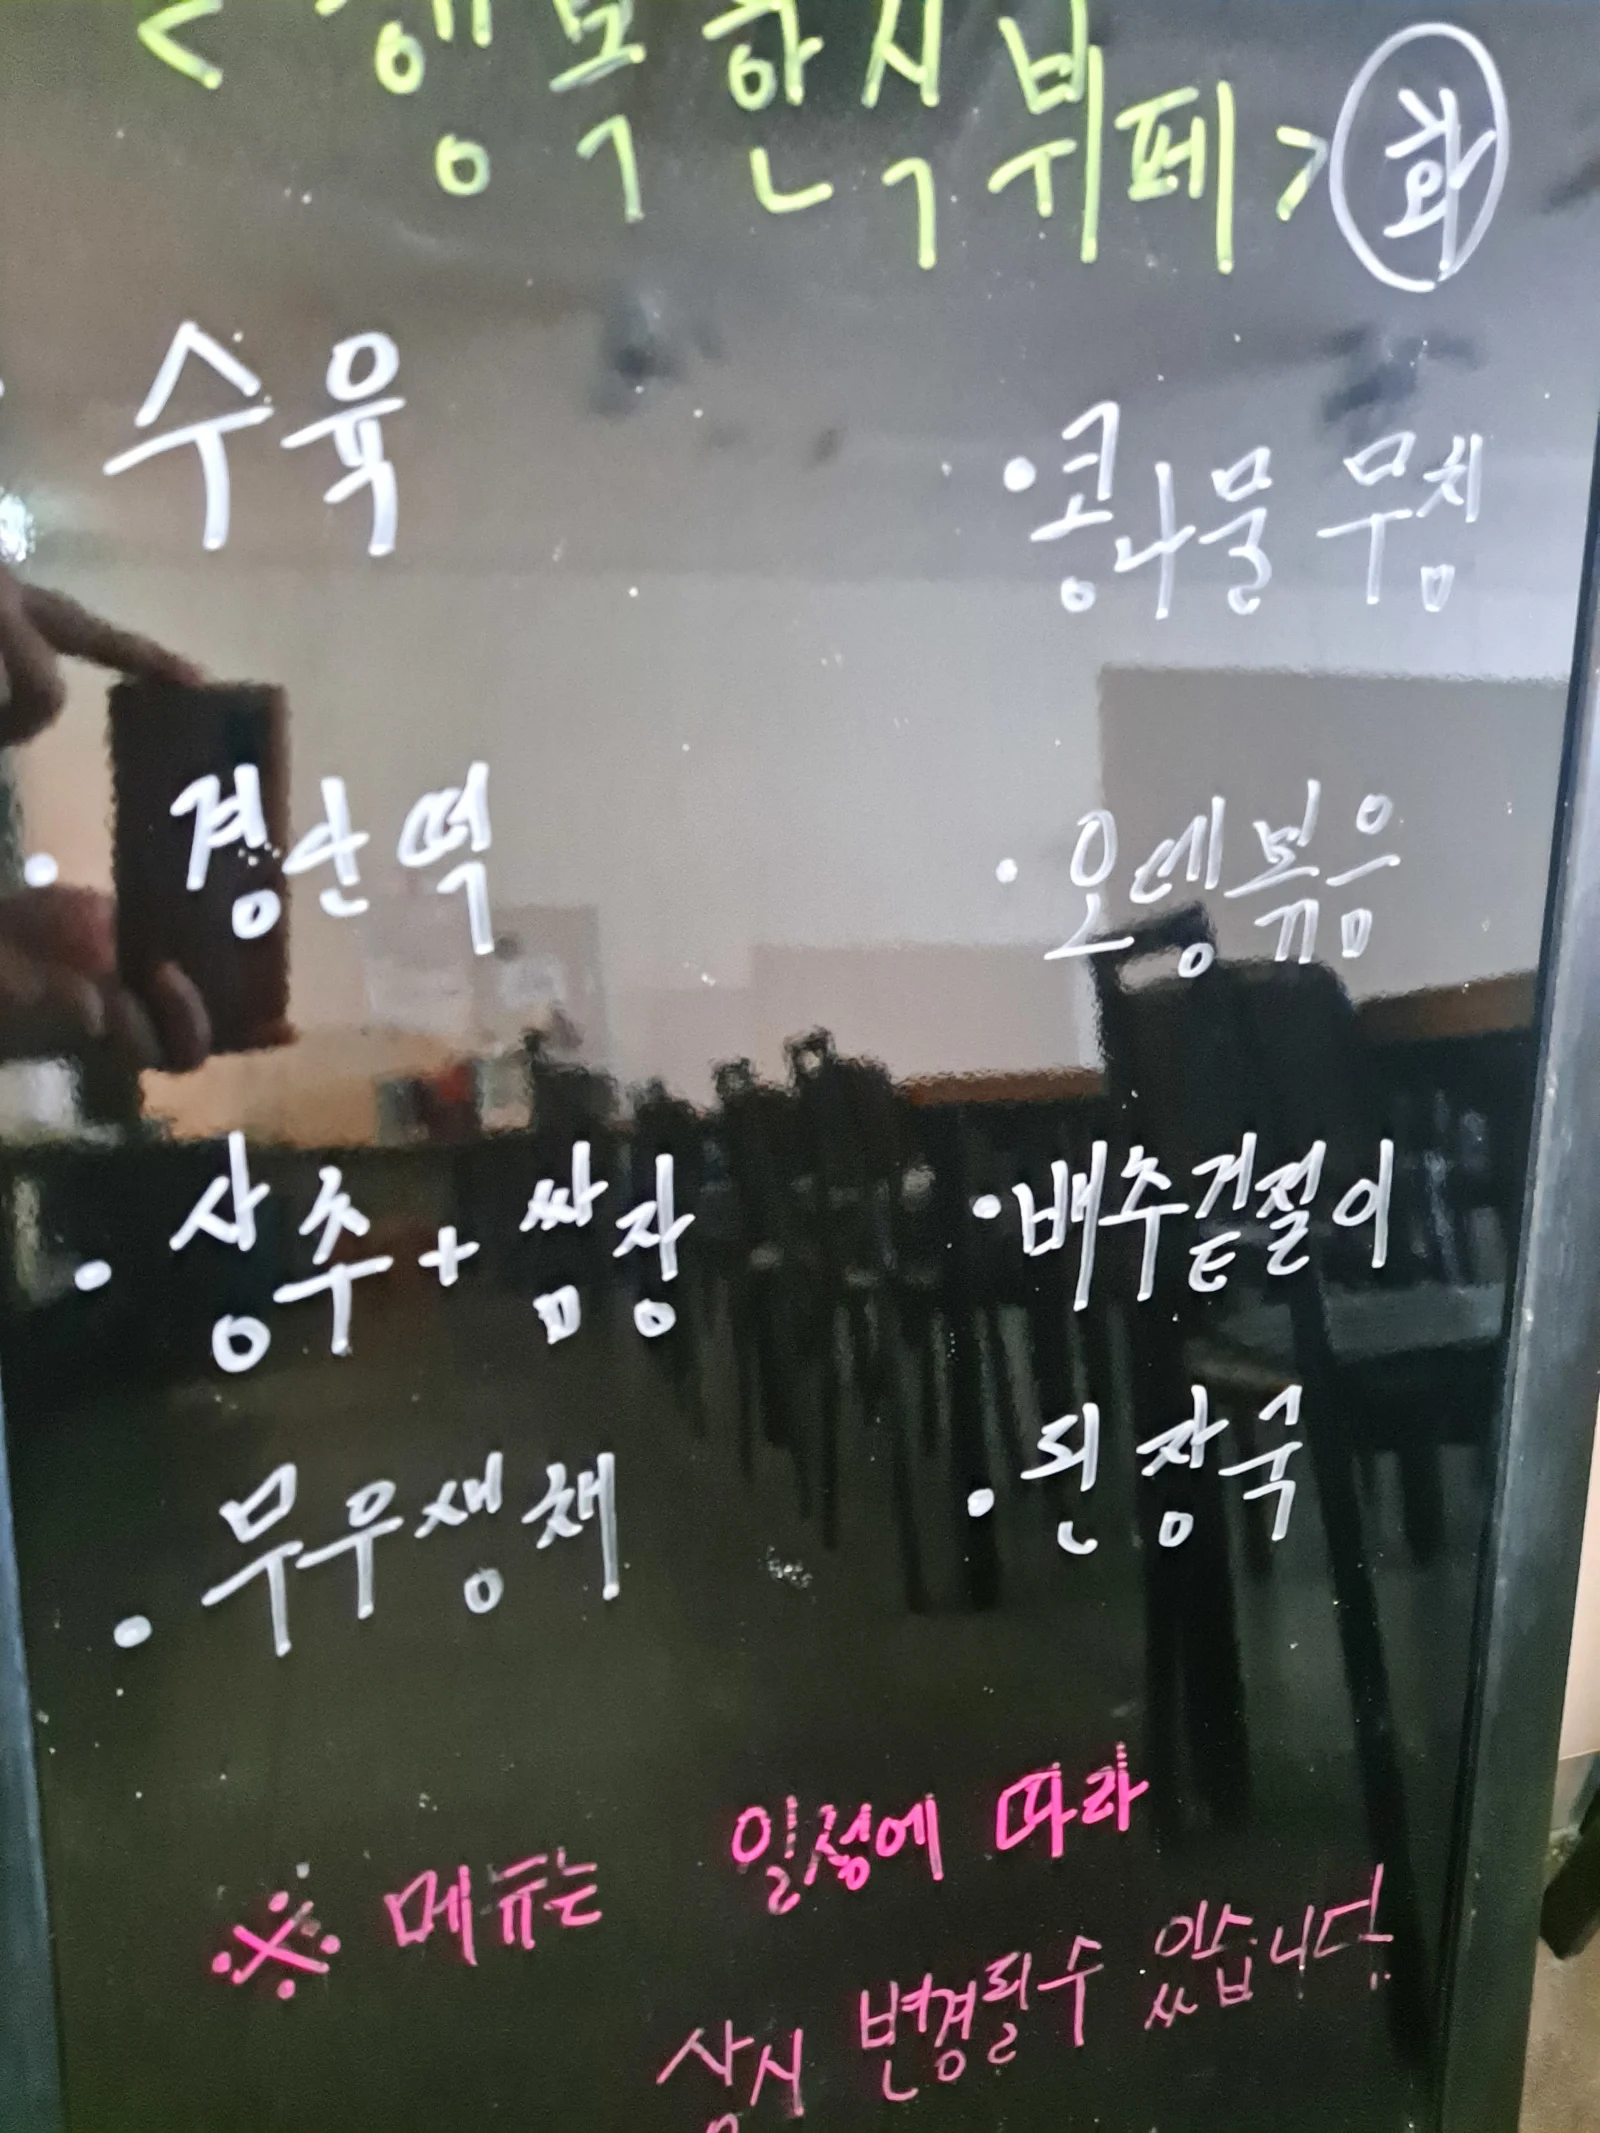 < 행복한식뷔페 > 화
수육
· 콩나물 무침
· 경단떡
· 오뎅볶음
· 상추 + 쌈장
· 배추겉절이
· 무우생채
· 된장국
※ 메뉴는 일정에 따라
상시 변경될수 있습니다.